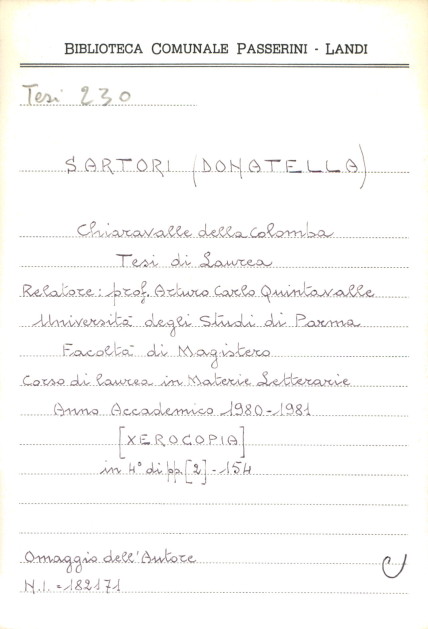 BIBLIOTECA COMUNALE PASSERINI - LANDI
Tesi 230
SARTORI (DONATELLA)
Chiaravalle della Colomba
Tesi di Laurea
Relatore: prof. Arturo Carlo Quintavalle
Università degli Studi di Parma
Facoltà di Magistero
Corso di laurea in Materie Letterarie
Anno Accademico 1980-1981
[XEROCOPIA]
in 4° di pp. [2] - 154
Omaggio dell'Autore
N.I. = 182171